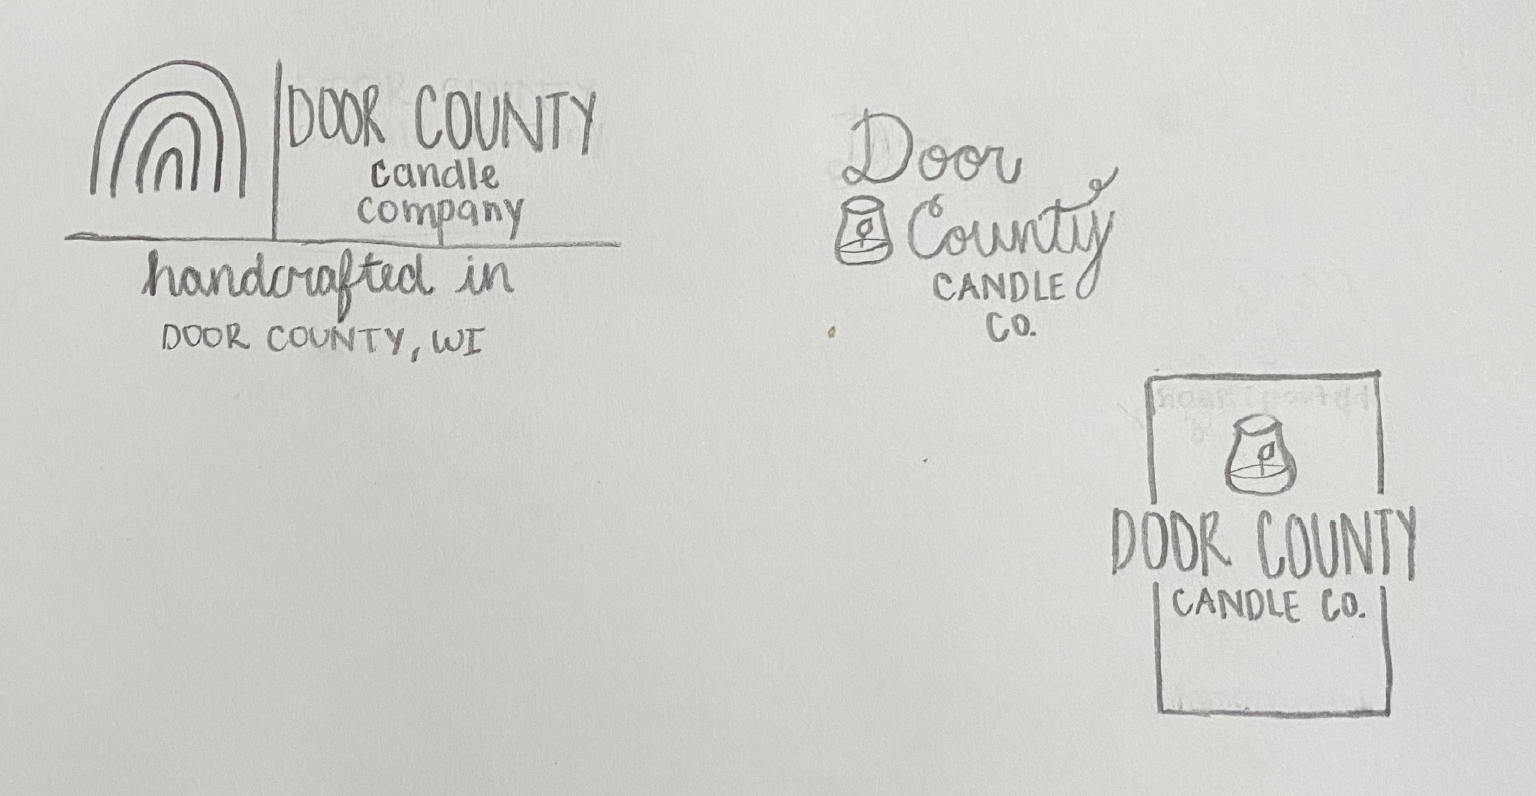 DOOR COUNTY
candle
company
handcrafted in
DOOR COUNTY, WI
Door
County
CANDLE
CO.
DOOR COUNTY
CANDLE CO.